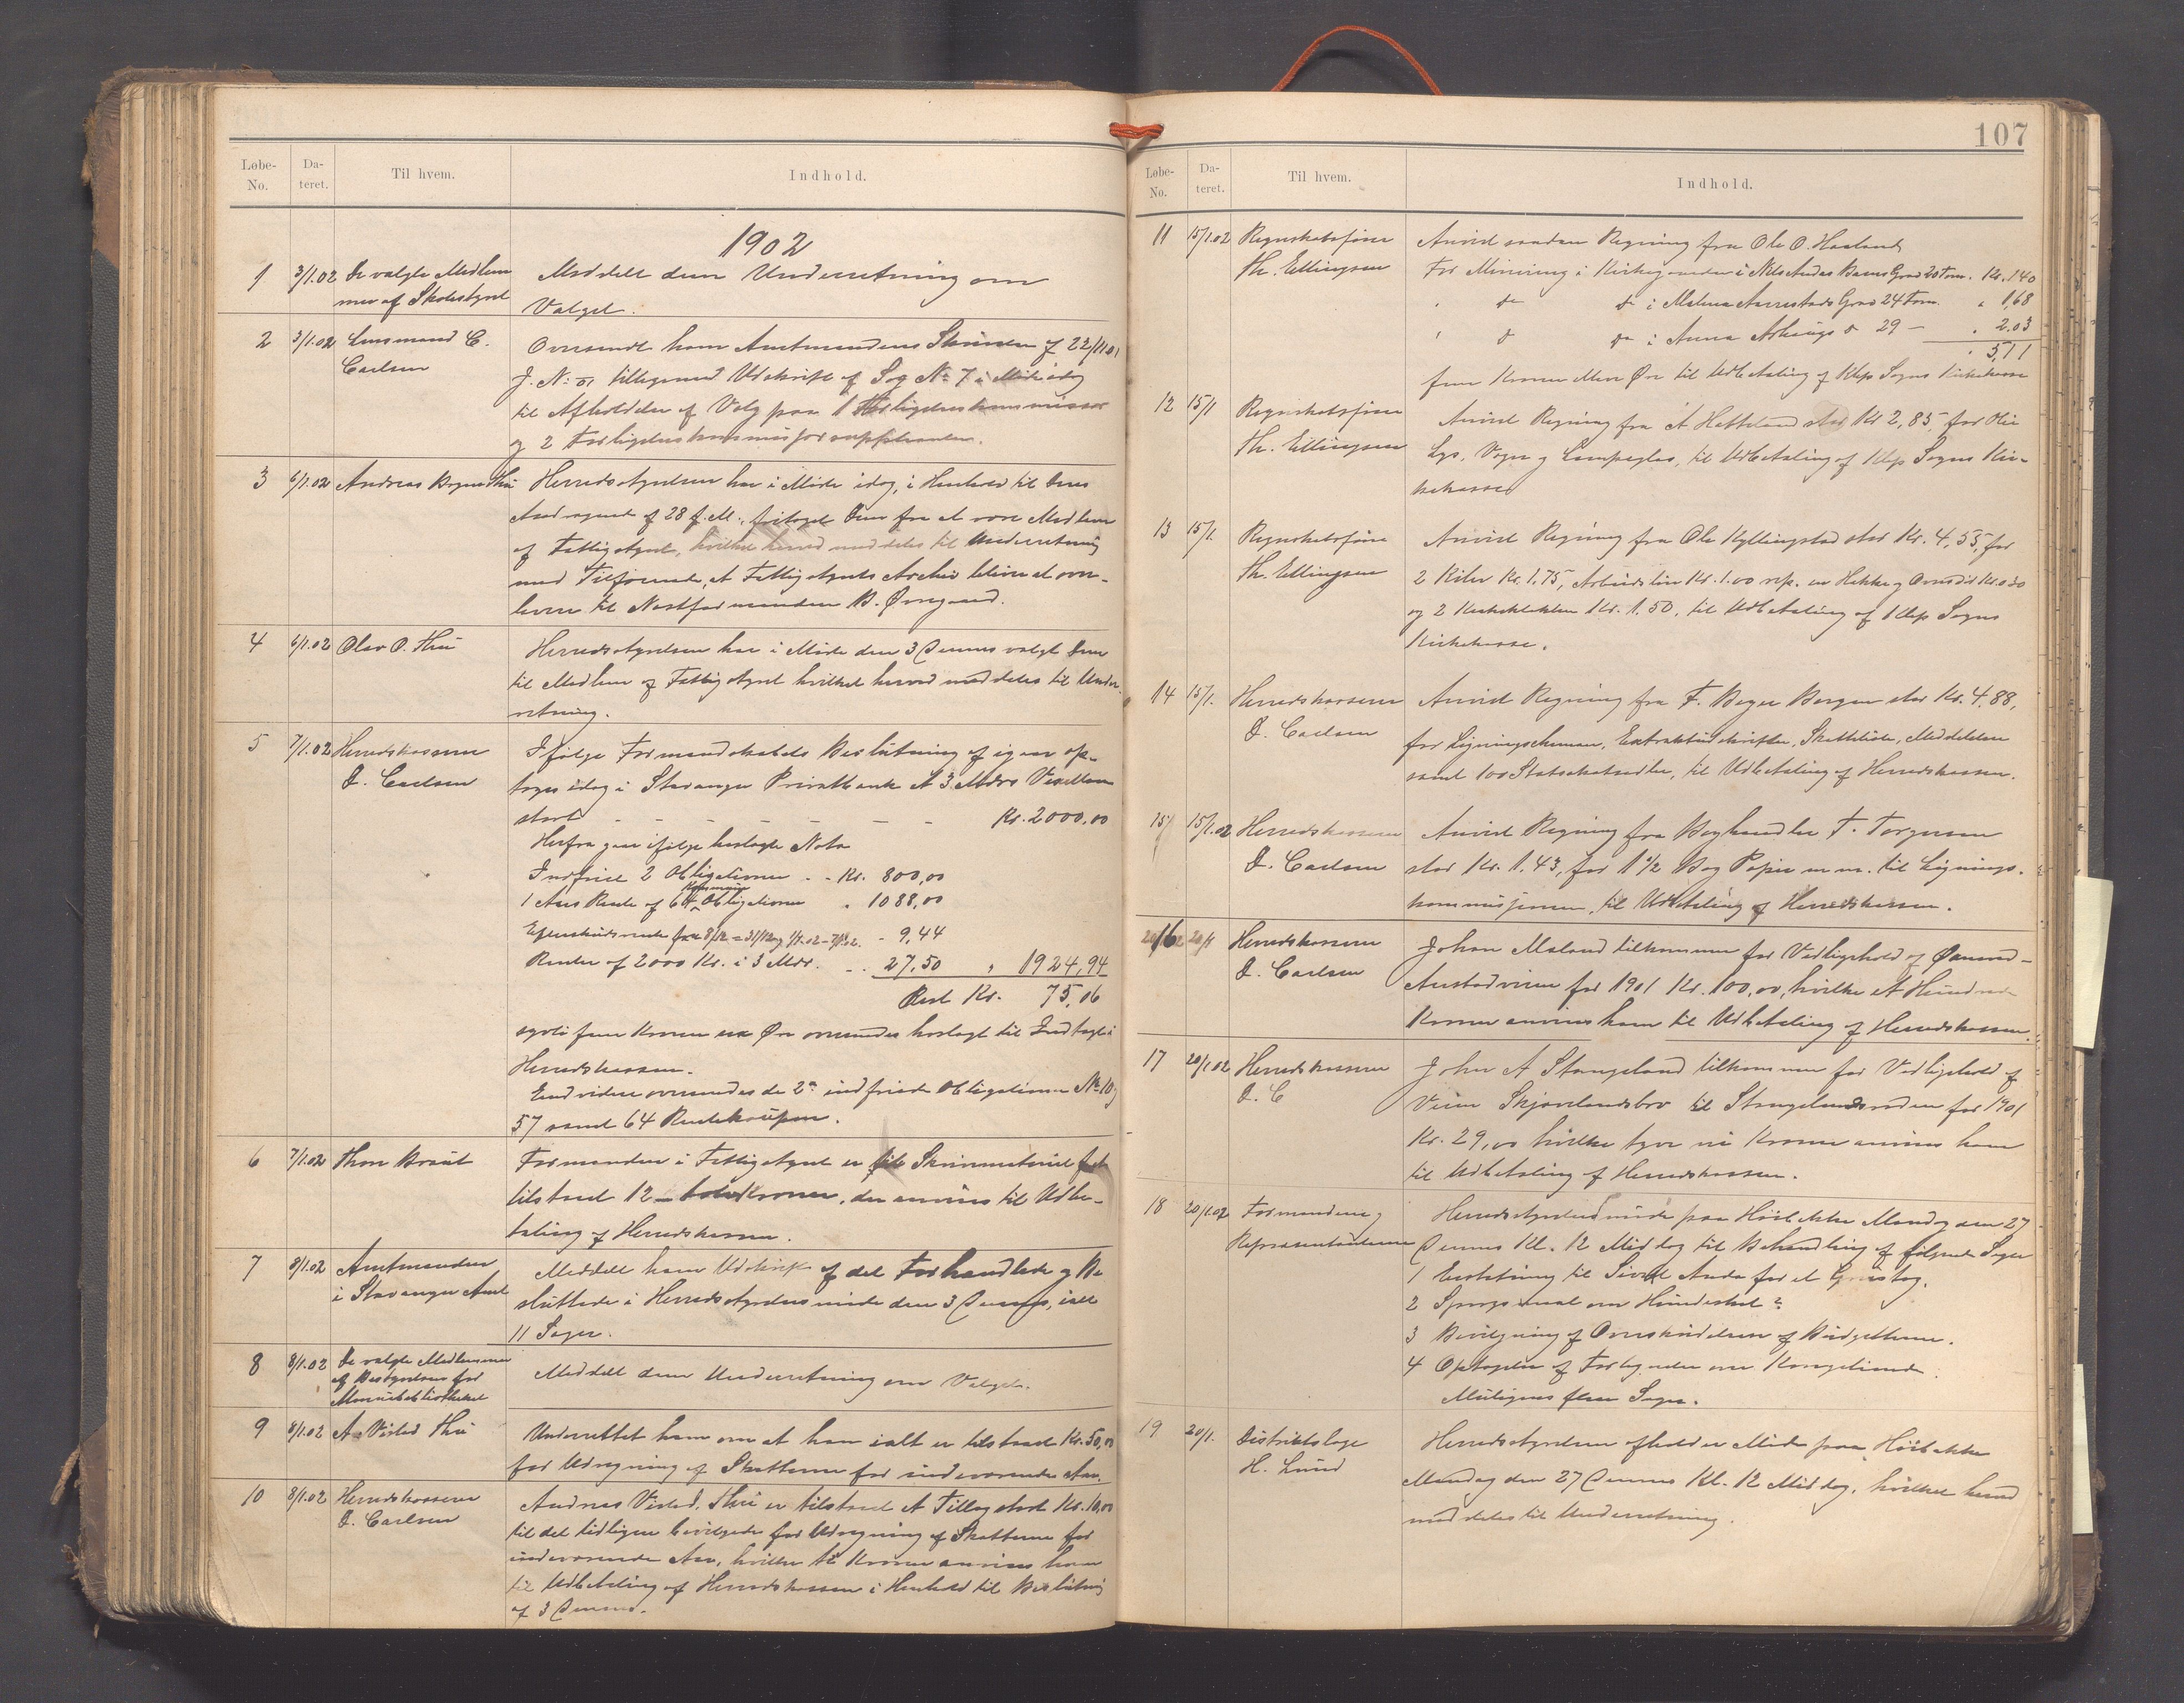 107
Løbe-No. Dateret. Til hvem. Indhold.
1902
1 3/1.02 De valgte Medlem Meddelt dem Underretning om
mer af Skolestyret Valget.
2 3/1.02 Lensmand C. Oversendt ham Amtmandens Skrivelse af 22/11 01
Carlsen J. No: tillegemed Udskrift af Sag No 7 i Møde idag
til Afholdelse af Valg paa 1 Forligelseskommissær
og 2 Forligelseskommissærsuppleanter.
3 6/1.02 Andreas Braut Thu Herredsstyrelsen har i Møde idag, i Henhold til Deres
Andragende af 28 f.M., fritaget Dem fra at være Medlem
af Fattigstyret, hvilket herved meddeles til Underretning
med Tilføiende, at Fattigstyrets Archiv bliver at over-
levere til Næstformanden B. Øvregaard.
4 6/1.02 Olav O. Thu Herredsstyrelsen har i Møde den 3 Dennes valgt Dem
til Medlem af Fattigstyret hvilket herved meddeles til Under-
retning.
5 7/1.02 Herredskasserer Ifølge Formandskabets Beslutning af igaar op-
D. Carlsen toges idag i Stavanger Privatbank et 3 Mdrs Vexellaan
stort – – – – – – – Kr. 2000,00
Herfra gaar ifølge hoslagte Nota
Indfriet 2 Obligationer - - Kr. 800,00
1 Aars Rente af 64 Kommune Obligationer " 1088,00
Efterskudsrente fra 8/12 - 31/12 og 1/1.02 - 7/1.02. - 9,44
Renter af 2000 Kr. i 3 Mdr. - - 27,50 " 1924,94
Rest Kr. 75,06
sytti fem Kroner sex Øre oversendes hoslagt til Indtægt i
Herredskassen.
Endvidere oversendes de 2de indfriede Obligationer No 10 og
57 samt 64 Rentekouponer.
6 7/1.02 Thore Braut Formanden i Fattigstyret er til Skrivematerial
tilstaaet 12 – tolv Kroner, der anvises til Udbe-
taling af Herredskassen.
7 8/1.02 Amtmanden Meddelt ham Udskrift af det Forhandlede og Be
i Stavanger Amt sluttede i Herredsstyrelsesmøde den 3 Dennes, ialt
11 Sager.
8 8/1.02 De valgte Medlemmer Meddelt dem Underretning om Valget.
af Bestyrelsen for
9 8/1.02 A. Visted Thu Underrettet ham om at han ialt er tilstaaet Kr. 50,00
for Udregning af Skatterne for indeværende Aar.
10 8/1.02 Herredskasserer Andreas Visted, Thu er tilstaaet et Tillæg stort Kr. 10,00
D. Carlsen til det tidligere bevilgede for Udregning af Skatterne for
indeværende Aar, hvilke ti Kroner anvises ham
til Udbetaling af Herredskassen i Henhold til Beslutning
af 3 Dennes.
Løbe-No. Dateret. Til hvem. Indhold.
11 15/1.02 Regnskabsfører Anvist saadan Regning fra Ole O. Haaland
Th. Ellingsen For Minering i Kirkegaarden i Nils Andas Barns Grav 20 Tom. Kr. 1,40
" do do i Malena Aarrestads Grav 24 Tom. " 1,68
" do do i Anna do 29 – " 2.03
" 5,11
fem Kroner elleve Øre til Udbetaling af Klep Sogns Kirkekasse
12 15/1 Regnskabsfører Anvist Regning fra A. Hatteland stor Kr 2,85, for Olie
Th. Ellingsen Lys, Væger og Lampeglas, til Udbetaling af Klep Sogns Kir-
kekasse
13 15/1. Regnskabsfører Anvist Regning fra Ole Kyllingstad stor Kr. 4,55, for
Th. Ellingsen 2 Kiler Kr. 1.75, Arbeidsløn Kr. 1.00 rep. en Hakke og Kr. 0.30
og 2 Kr. 1.50, til Udbetaling af Klep Sogns
Kirkekasse.
14 15/1. Herredskasserer Anvist Regning fra F. Beyer Bergen stor Kr. 4,88,
D. Carlsen for Ligningsskemaer, Extraktudskrifter, Skattelister, Meddelelser
samt 100 Statsskatsedler, til Udbetaling af Herredskassen.
15 15/1.02 Herredskasserer Anvist Regning fra Boghandler T. Torgersen
D. Carlsen stor Kr. 1.43, for 1 1/2 Bog Papir m.m. til Lignings-
kommissjonen, til Udbetaling af Herredskassen.
16 20/1 Herredskasserer Johan Meland tilkommer for Vedligehold af
D. Carlsen Anstadveien for 1901 Kr. 100,00, hvilke et Hundrede
Kroner anvises ham til Udbetaling af Herredskassen.
17 20/1.02 Herredskasserer John A Stangeland tilkommer for Vedligehold af
D. C Veien Skjævelandsbro til Stangelandsraden for 1901
Kr. 29,00 hvilke tyve ni Kroner anvises ham
til Udbetaling af Herredskassen.
18 20/1.02 Formændene og Herredsstyrelsesmøde paa Høibakke Mandag den 27
Repræsentanterne Dennes Kl. 12 Middag til Behandling af følgende Sager
1 Erstatning til Sivert Anda for et Grustag.
2 Spørgsmaal om Hundeskat?
3 Bevilgning af Overskridelsen af Budgetterne.
4 Optagelse af Forslag om Kongeliende.
Muligens flere Sager.
19 20/1. Distriktslæge Herredsstyrelsen afholder Møde paa Høibakke
H. Lund Mandag den 27 Dennes Kl. 12 Middag, hvilket herved
meddeles til Underretning.